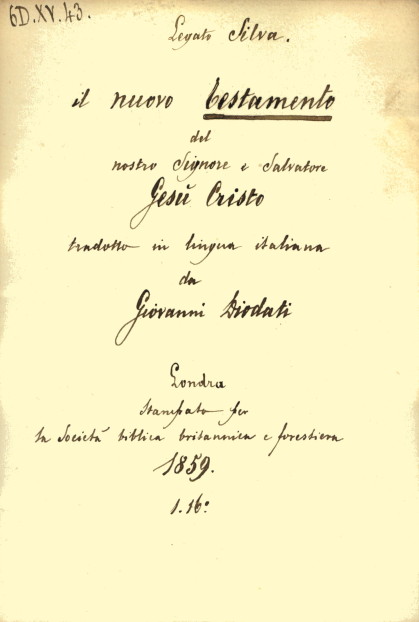 6D.XV.43.
Legato Silva.
il nuovo testamento
del
nostro Signore e Salvatore
Gesù Cristo
tradotto in lingua italiana
da
Giovanni Diodati
Londra
Stampato per
la Società biblica britannica e forestiera
1859.
1.16°